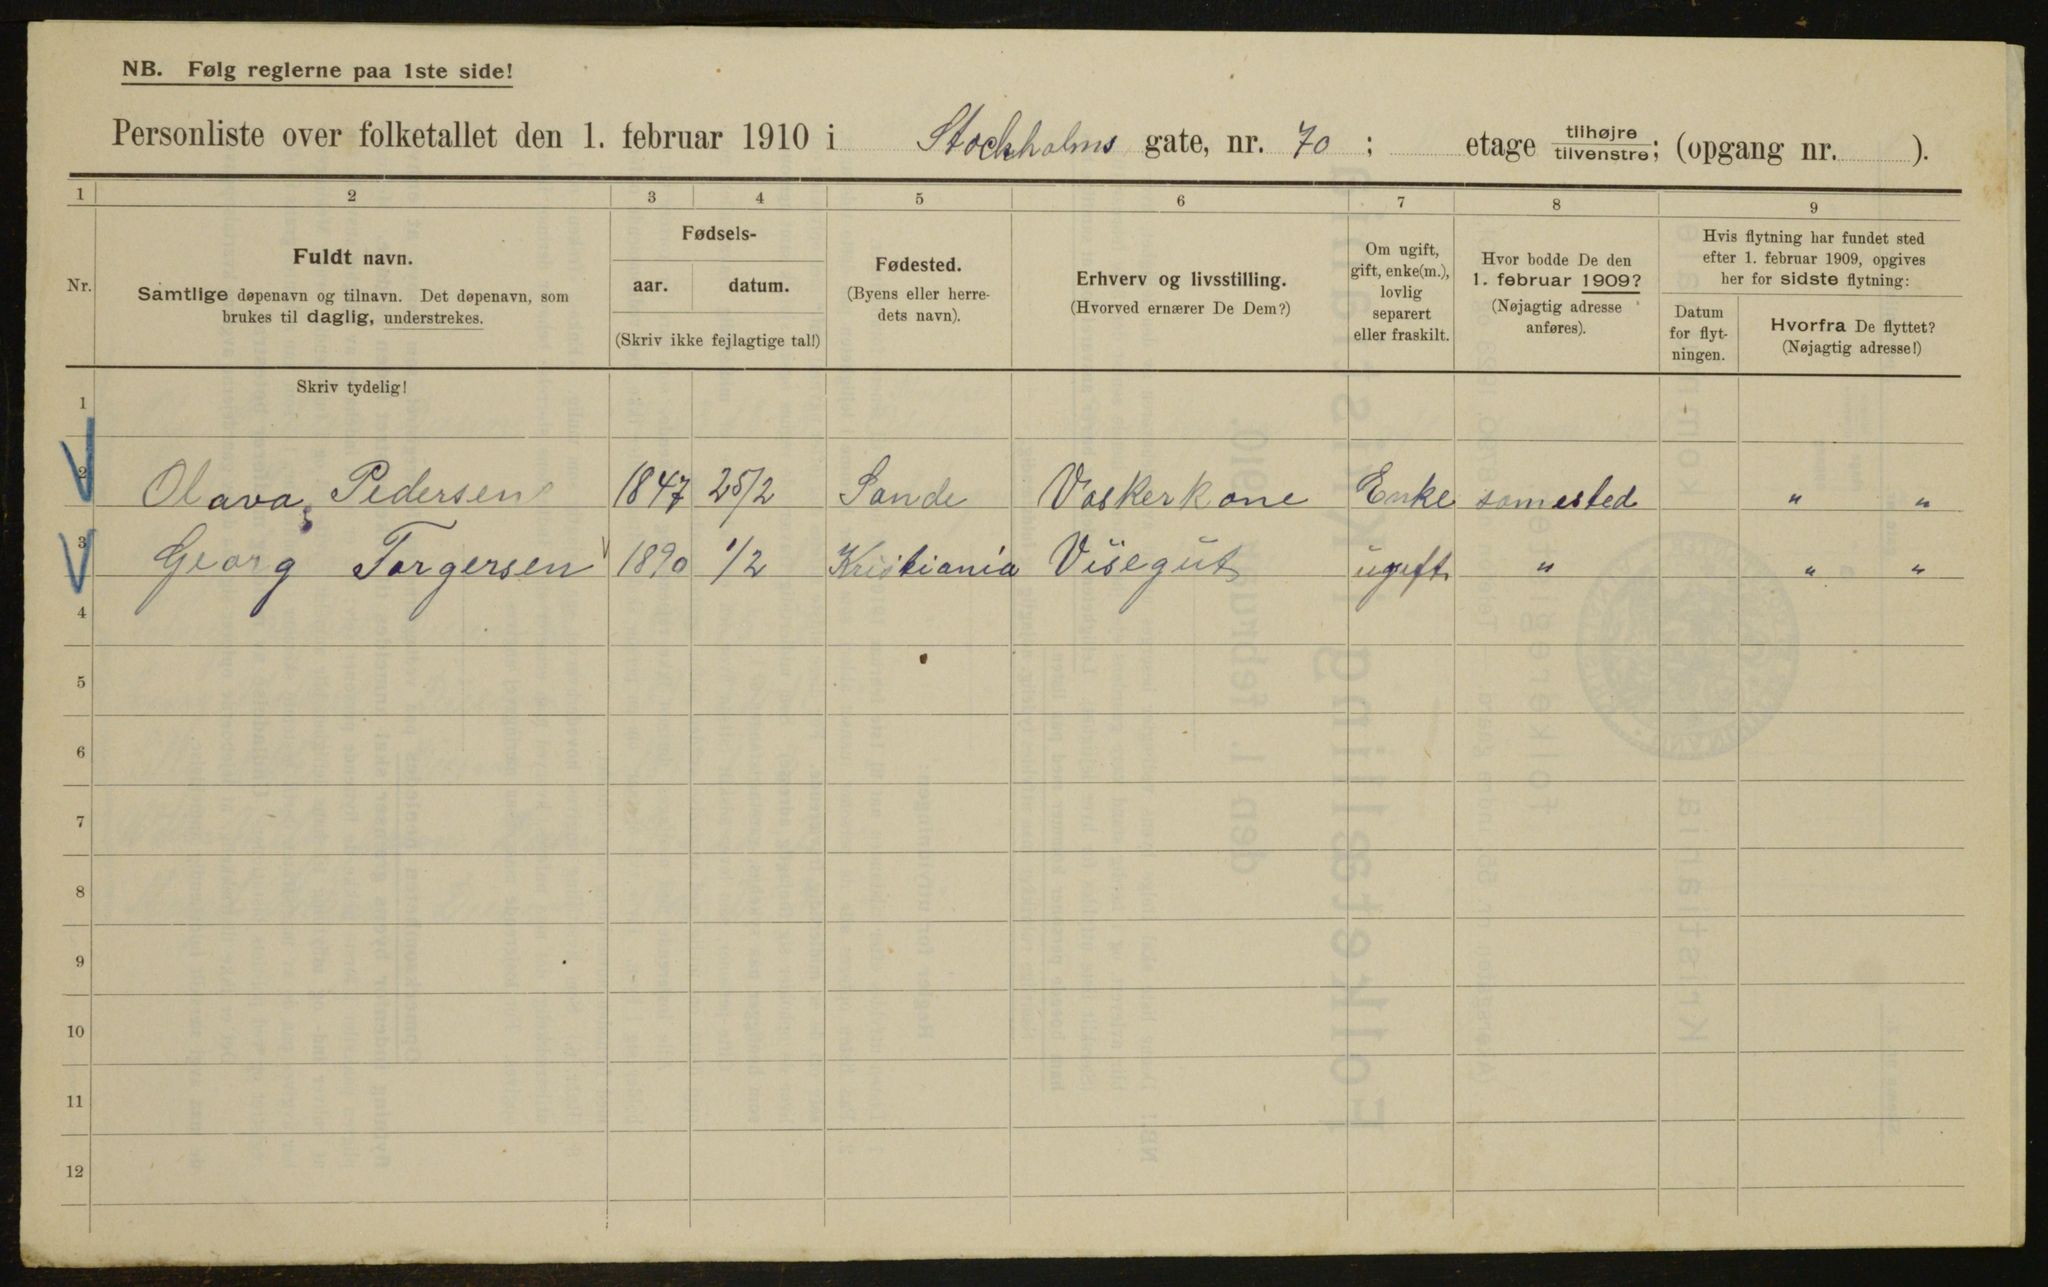 NB. Følg reglerne paa 1ste side!
Personliste over folketallet den 1. februar 1910 i Stockholms gate, nr. 70 ; etage tilhøjre tilvenstre; (opgang nr. ).
1 2 3 4 5 6 7 8 9
Nr.
Fuldt navn.
Samtlige døpenavn og tilnavn. Det døpenavn, som
brukes til daglig, understrekes.
Skriv tydelig!
Fødsels-
aar. datum.
(Skriv ikke fejlagtige tal!)
Fødested.
(Byens eller herre-
dets navn).
Erhverv og livsstilling.
(Hvorved ernærer De Dem?)
Om ugift,
gift, enke(m.),
lovlig
separert
eller fraskilt.
Hvor bodde De den
1. februar 1909?
(Nøjagtig adresse
anføres).
Hvis flytning har fundet sted
efter 1. februar 1909, opgives
her for sidste flytning:
Datum
for flyt-
ningen.
Hvorfra De flyttet?
(Nøjagtig adresse!)
1
2 Olava Pedersen 1847 25/2 Sande Vaskerkone Enke samested " "
3 Georg Torgersen 1890 1/2 Kristiania Visegut ugift " " "
4
5
6
7
8
9
10
11
12